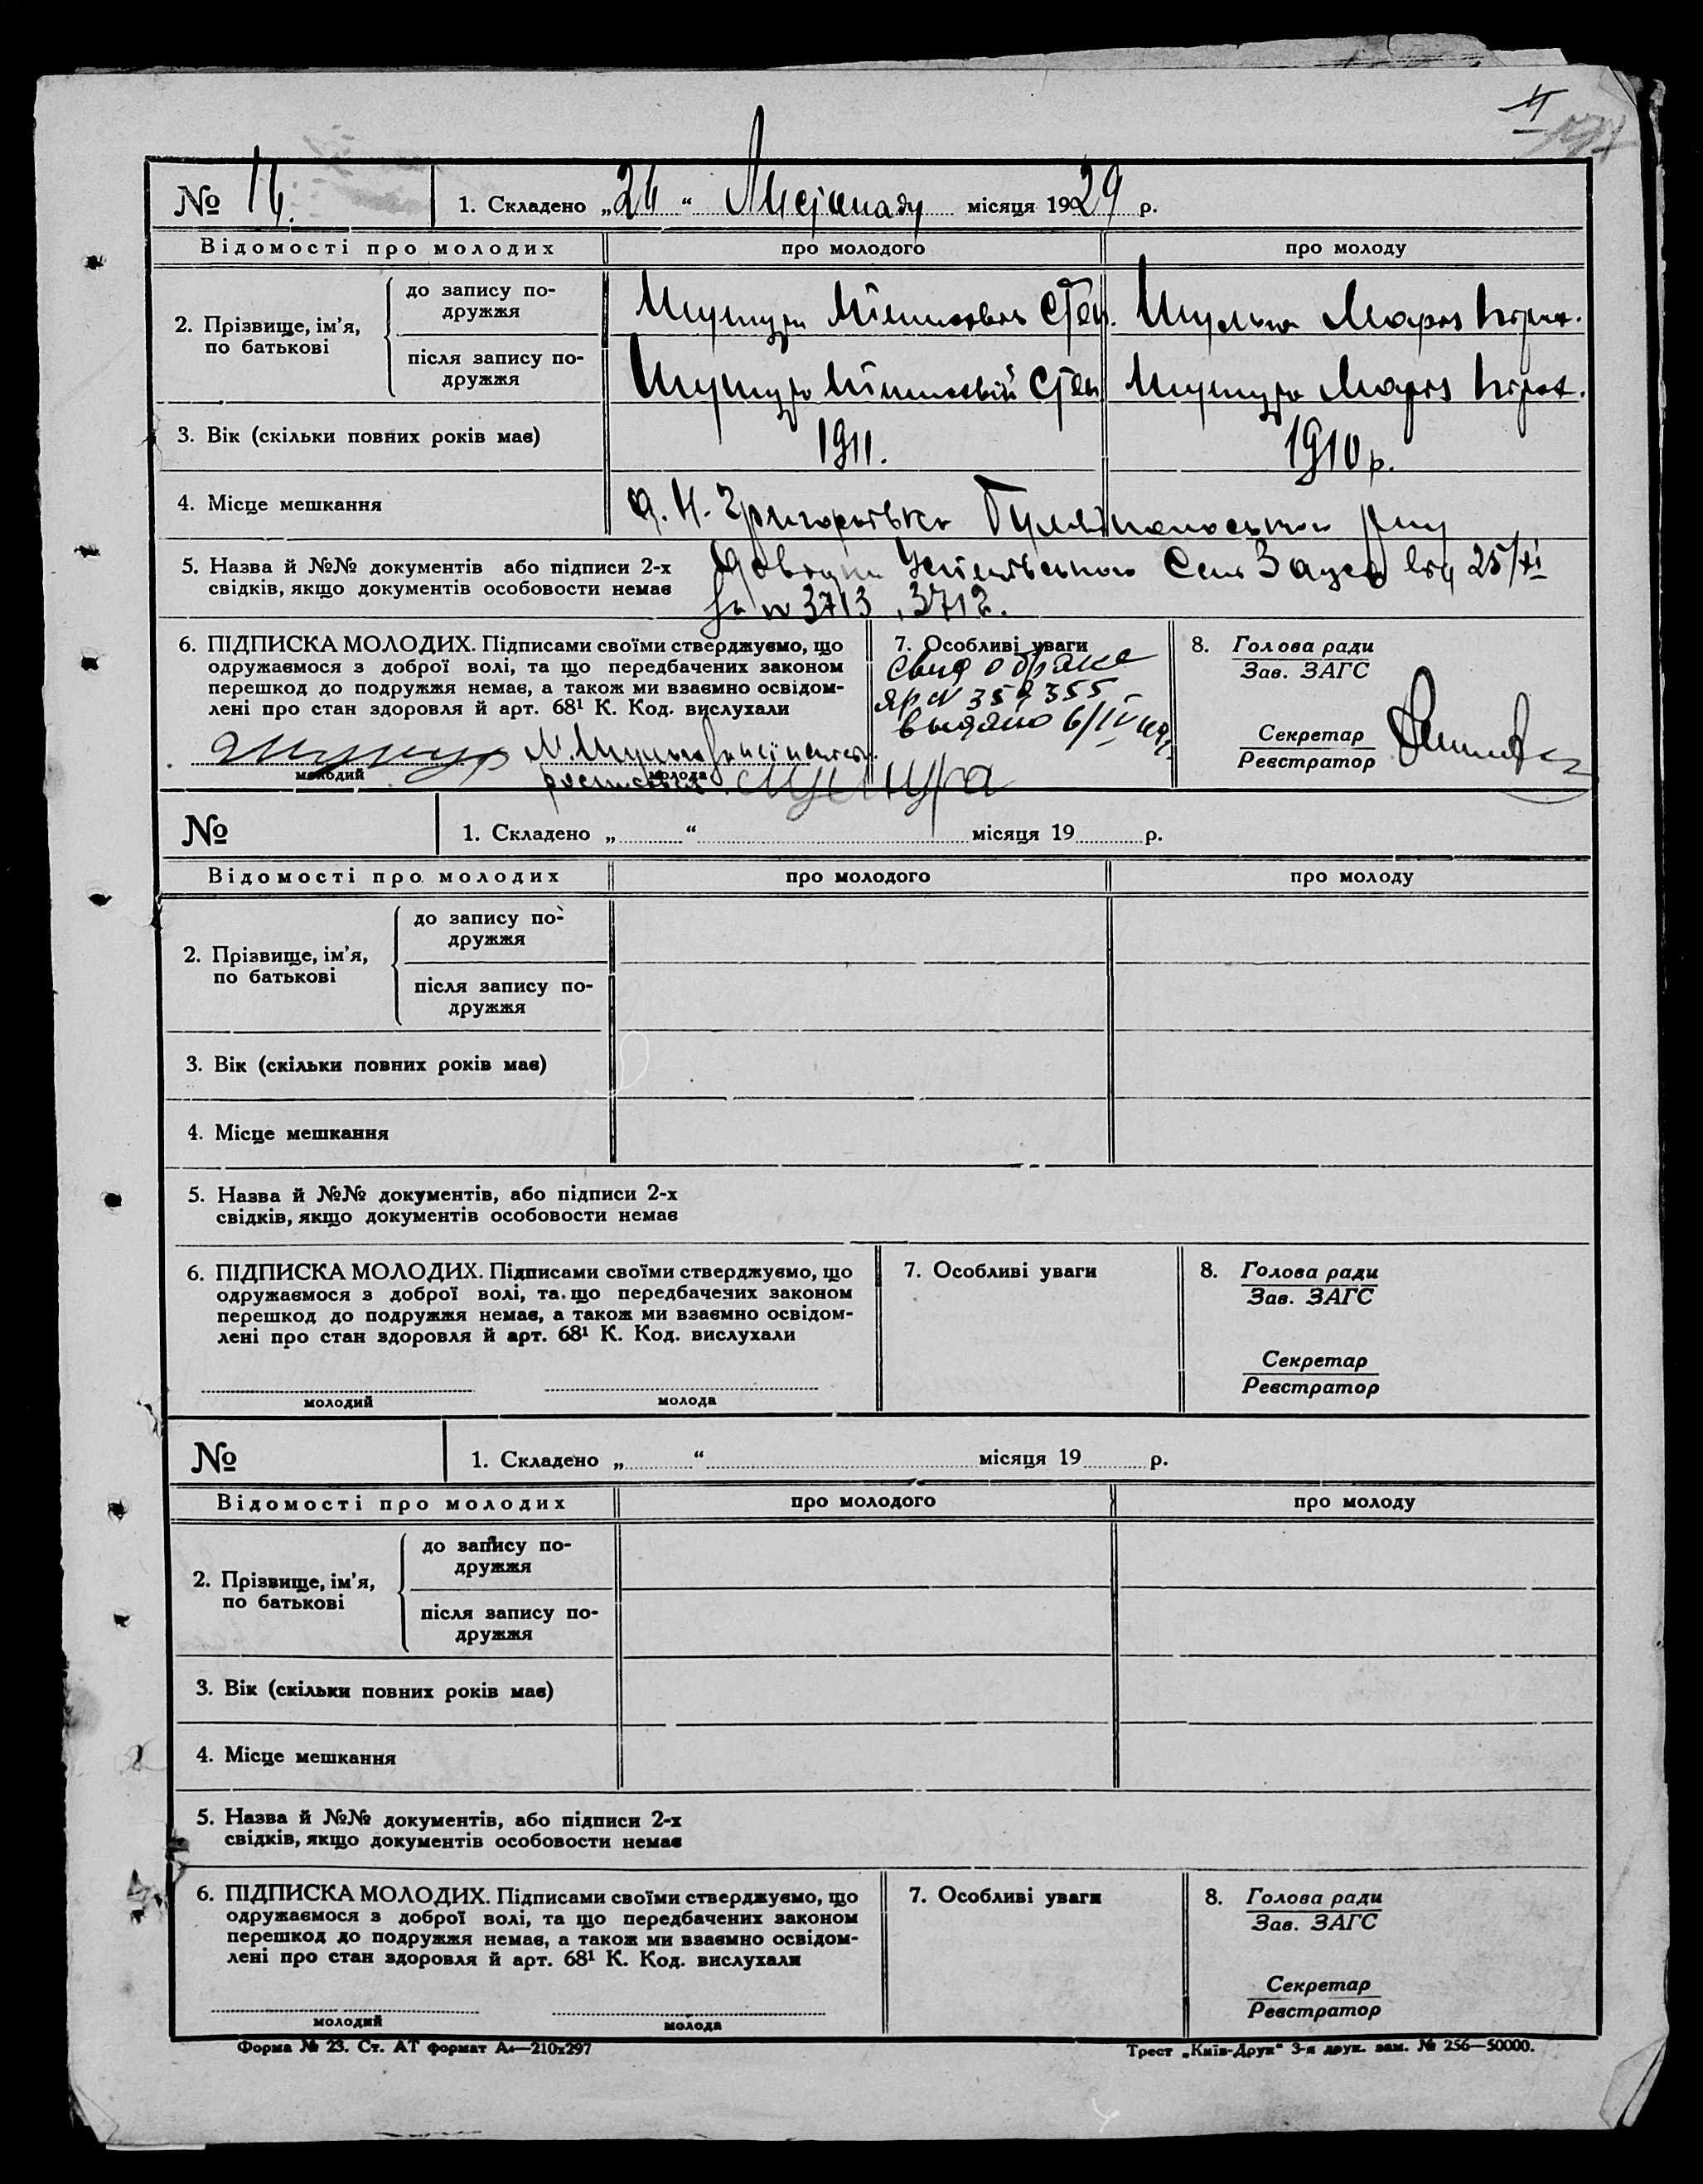 № 16. 1. Складено „26“ Листопаду місяця 1929 р.
Відомості про молодих про молодого про молоду
2. Прізвище, ім’я, по батькові
до запису подружжя Шушура Степ. Шулька Марія
після запису подружжя Шушура Степ Шушура Марія
3. Вік (скільки повних років має) 1911. 1910 р.
4. Місце мешкання Н. Григорівка Гуляйпольського р-ну
5. Назва й №№ документів або підписи 2-х
свідків, якщо документів особовости немає
Довідки Успенівського 25/XI
за № 3713, 3712.
6. ПІДПИСКА МОЛОДИХ. Підписами своїми стверджуємо, що
одружаємося з доброї волі, та що передбачених законом
перешкод до подружжя немає, а також ми взаємно освідом-
лені про стан здоровля й арт. 68¹ К. Код. вислухали
М. Шулька
молодий молода
Шушура
7. Особливі уваги
свид о браке
ЯР № 357355
выдано 6/IV
8. Голова ради
Зав. ЗАГС
Секретар
Реєстратор
№ 1. Складено „ “ місяця 19 р.
Відомості про молодих про молодого про молоду
2. Прізвище, ім’я, по батькові
до запису по-
дружжя
після запису по-
дружжя
3. Вік (скільки повних років має)
4. Місце мешкання
5. Назва й №№ документів, або підписи 2-х
свідків, якщо документів особовости немає
6. ПІДПИСКА МОЛОДИХ. Підписами своїми стверджуємо, що
одружаємося з доброї волі, та що передбачених законом
перешкод до подружжя немає, а також ми взаємно освідом-
лені про стан здоровля й арт. 68¹ К. Код. вислухали
молодий молода
7. Особливі уваги
8. Голова ради
Зав. ЗАГС
Секретар
Реєстратор
№ 1. Складено „ “ місяця 19 р.
Відомості про молодих про молодого про молоду
2. Прізвище, ім’я, по батькові
до запису по-
дружжя
після запису по-
дружжя
3. Вік (скільки повних років має)
4. Місце мешкання
5. Назва й №№ документів, або підписи 2-х
свідків, якщо документів особовости немає
6. ПІДПИСКА МОЛОДИХ. Підписами своїми стверджуємо, що
одружаємося з доброї волі, та що передбачених законом
перешкод до подружжя немає, а також ми взаємно освідом-
лені про стан здоровля й арт. 68¹ К. Код. вислухали
молодий молода
7. Особливі уваги
8. Голова ради
Зав. ЗАГС
Секретар
Реєстратор
Форма № 23. Ст. АТ формат А4—210х297 Трест „Київ-Друк“ 3-я друк. зам. № 256—50000.